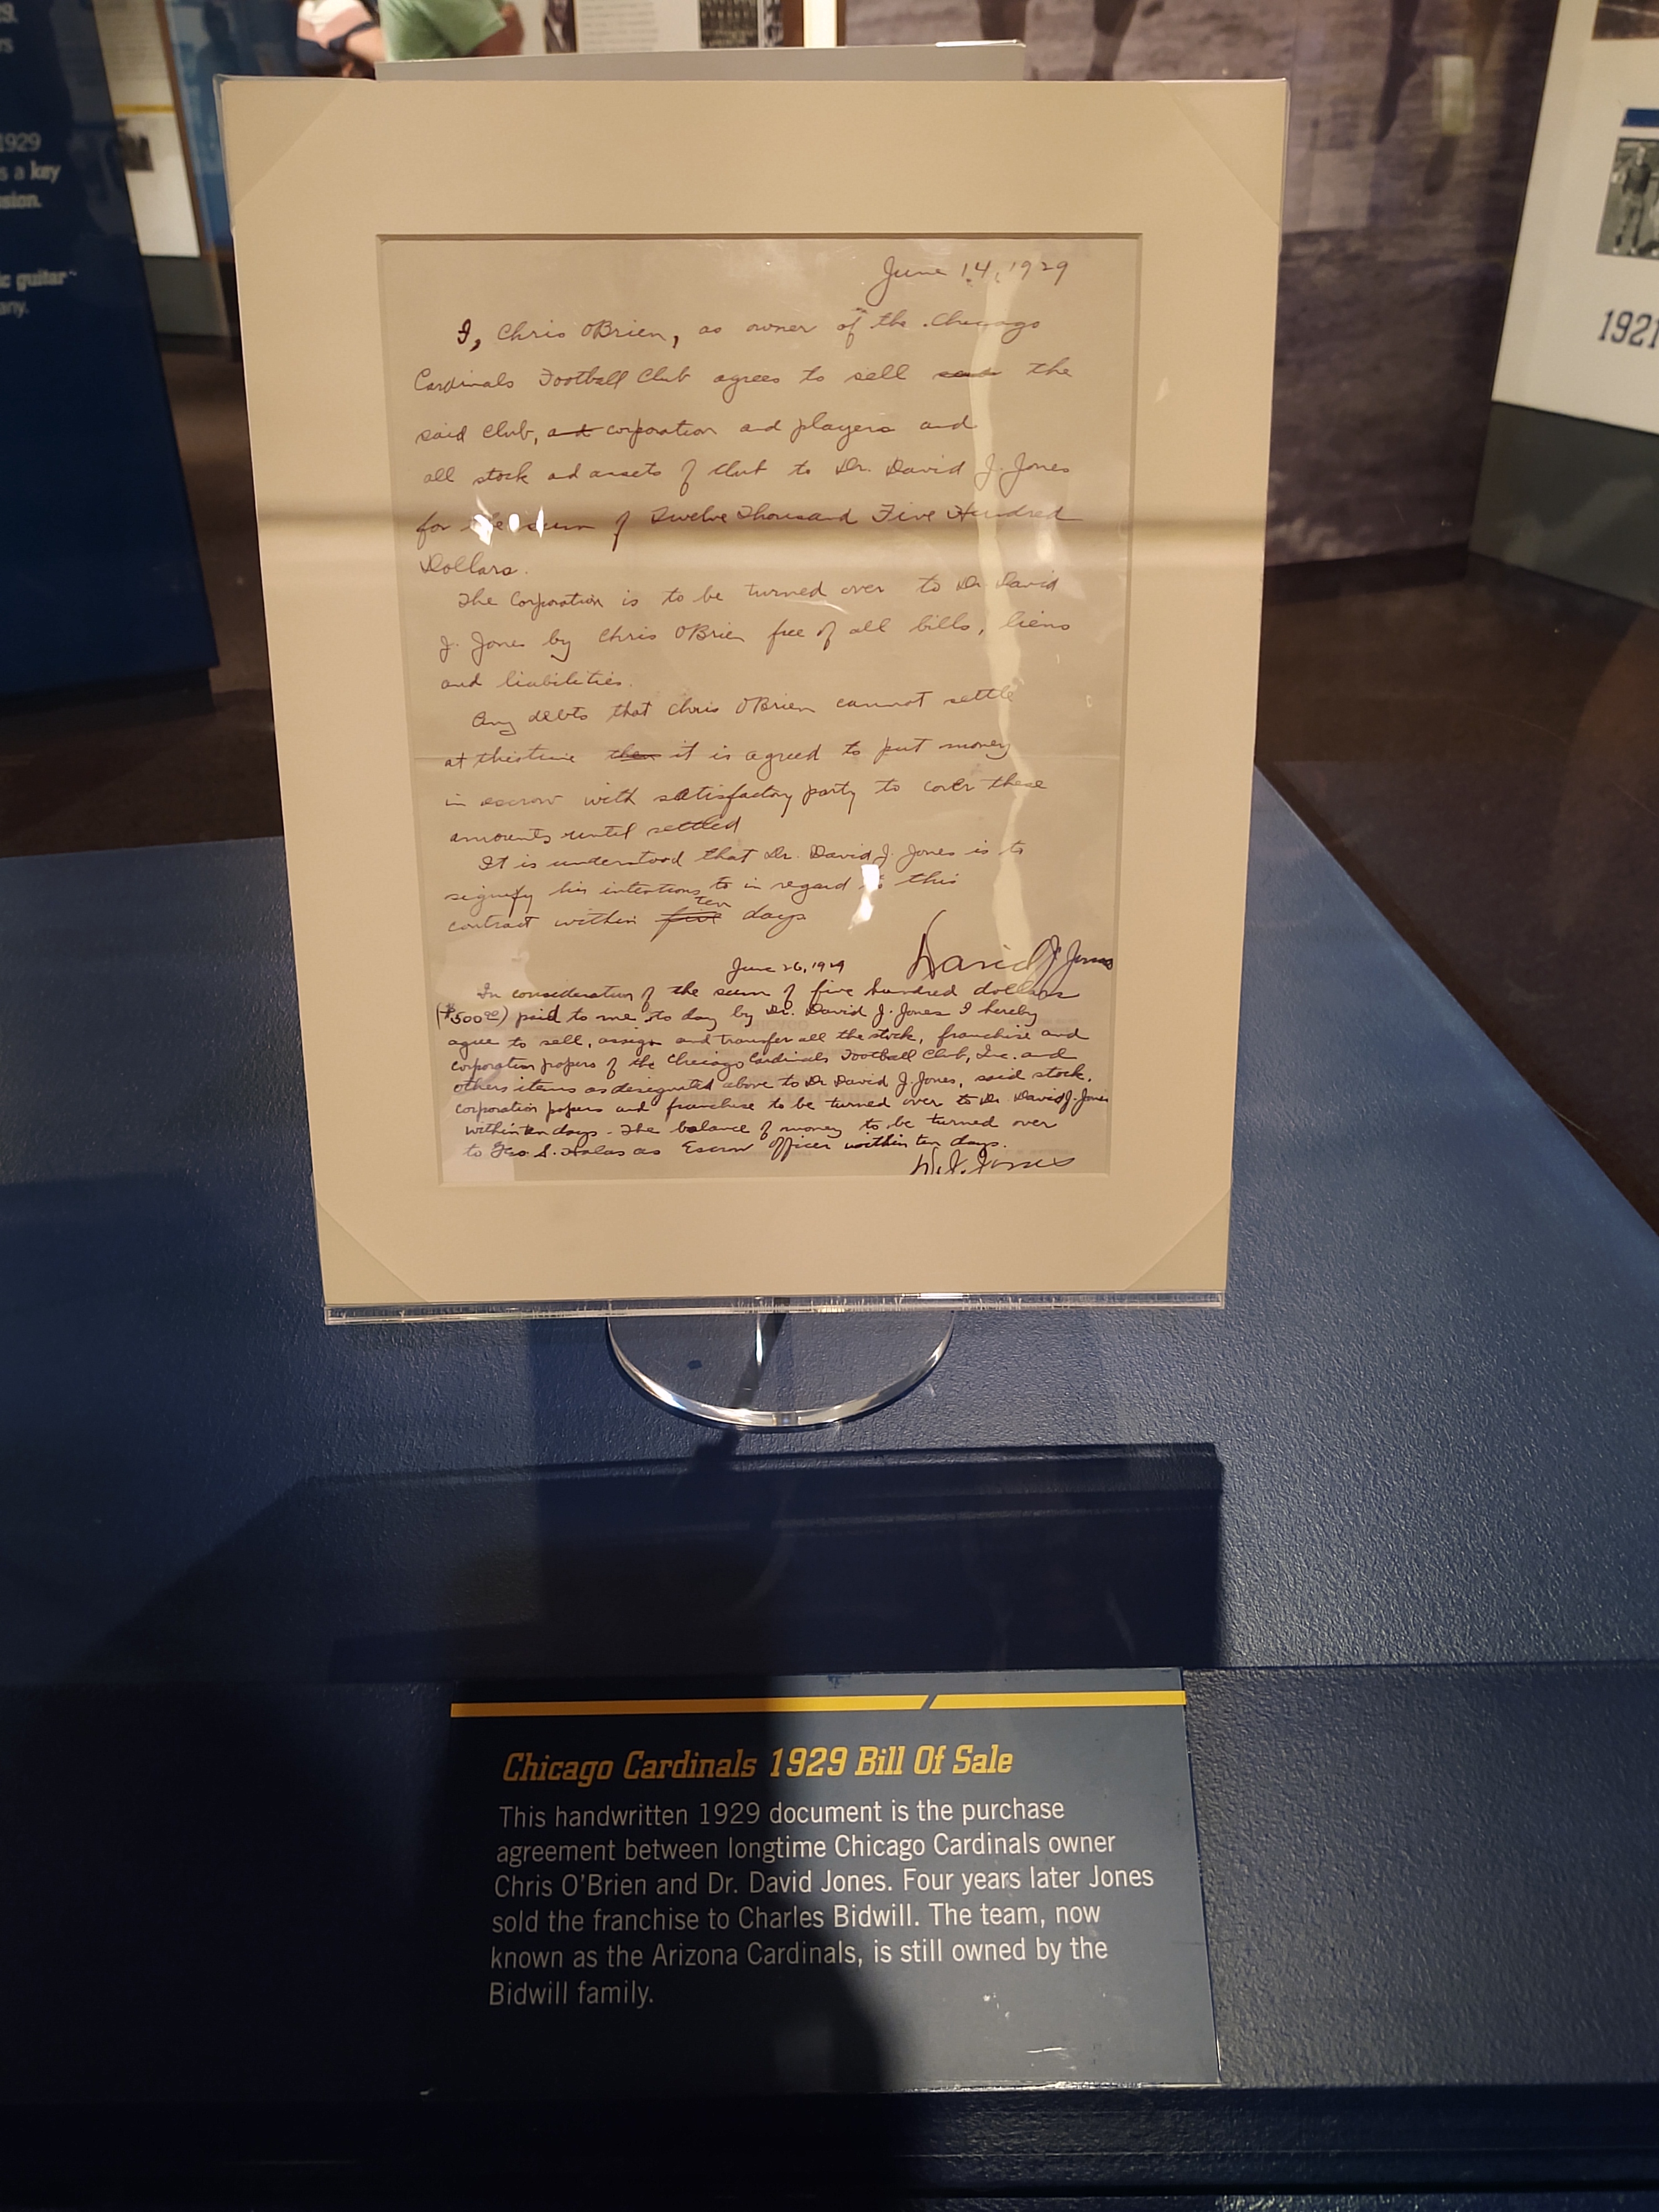 June 14, 1929
I, Chris O'Brien, as owner of the Chicago
Cardinals Football Club agrees to sell the
said Club, and corporation and players and
all stock ad assets of Club to Dr. David J. Jones
for the sum of Twelve Thousand Five Hundred
Dollars.
The Corporation is to be turned over to Dr David
J. Jones by Chris O'Brien free of all bills, liens
and liabilities.
Any debts that Chris O'Brien cannot settle
at this time then it is agreed to put money
in escrow with satisfactory party to cover these
amounts until settled
It is understood that Dr. David J. Jones is to
signify his intentions to in regard to this
contract within five ten days
David J. Jones
June 26, 1929
In consideration of the sum of five hundred dollars
($500.00) paid to me to day by Dr. David J. Jones I hereby
agree to sell, assign and transfer all the stock, franchise and
corporation papers of the Chicago Cardinals Football Club, Inc. and
others items as designated above to Dr David J. Jones, said stock,
corporation papers and franchise to be turned over to Dr David J. Jones
within ten days. The balance of money to be turned over
to Geo. S. Halas as Escrow Officer within ten days.
D. J. Jones
Chicago Cardinals 1929 Bill Of Sale
This handwritten 1929 document is the purchase
agreement between longtime Chicago Cardinals owner
Chris O'Brien and Dr. David Jones. Four years later Jones
sold the franchise to Charles Bidwill. The team, now
known as the Arizona Cardinals, is still owned by the
Bidwill family.
1929
s a key
ic guitar
any.
1921